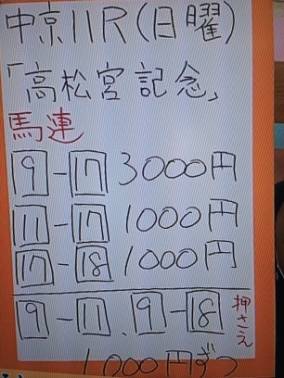 中京11R(日曜)
「高松宮記念」
馬連
9-17 3000円
11-17 1000円
17-18 1000円
9-11、9-18 押さえ
1000円ずつ